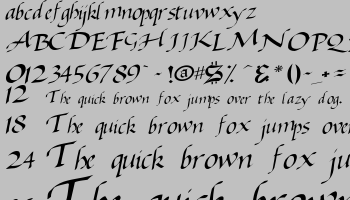 abcdefghijklmnopqrstuvwxyz
ABCDEFGHIJKLMNOPQ
0123456789` - !@#$% ^&*()- _+=
12 The quick brown fox jumps over the lazy dog.
18 The quick brown fox jumps over
24 The quick brown fox ju
The quick brown